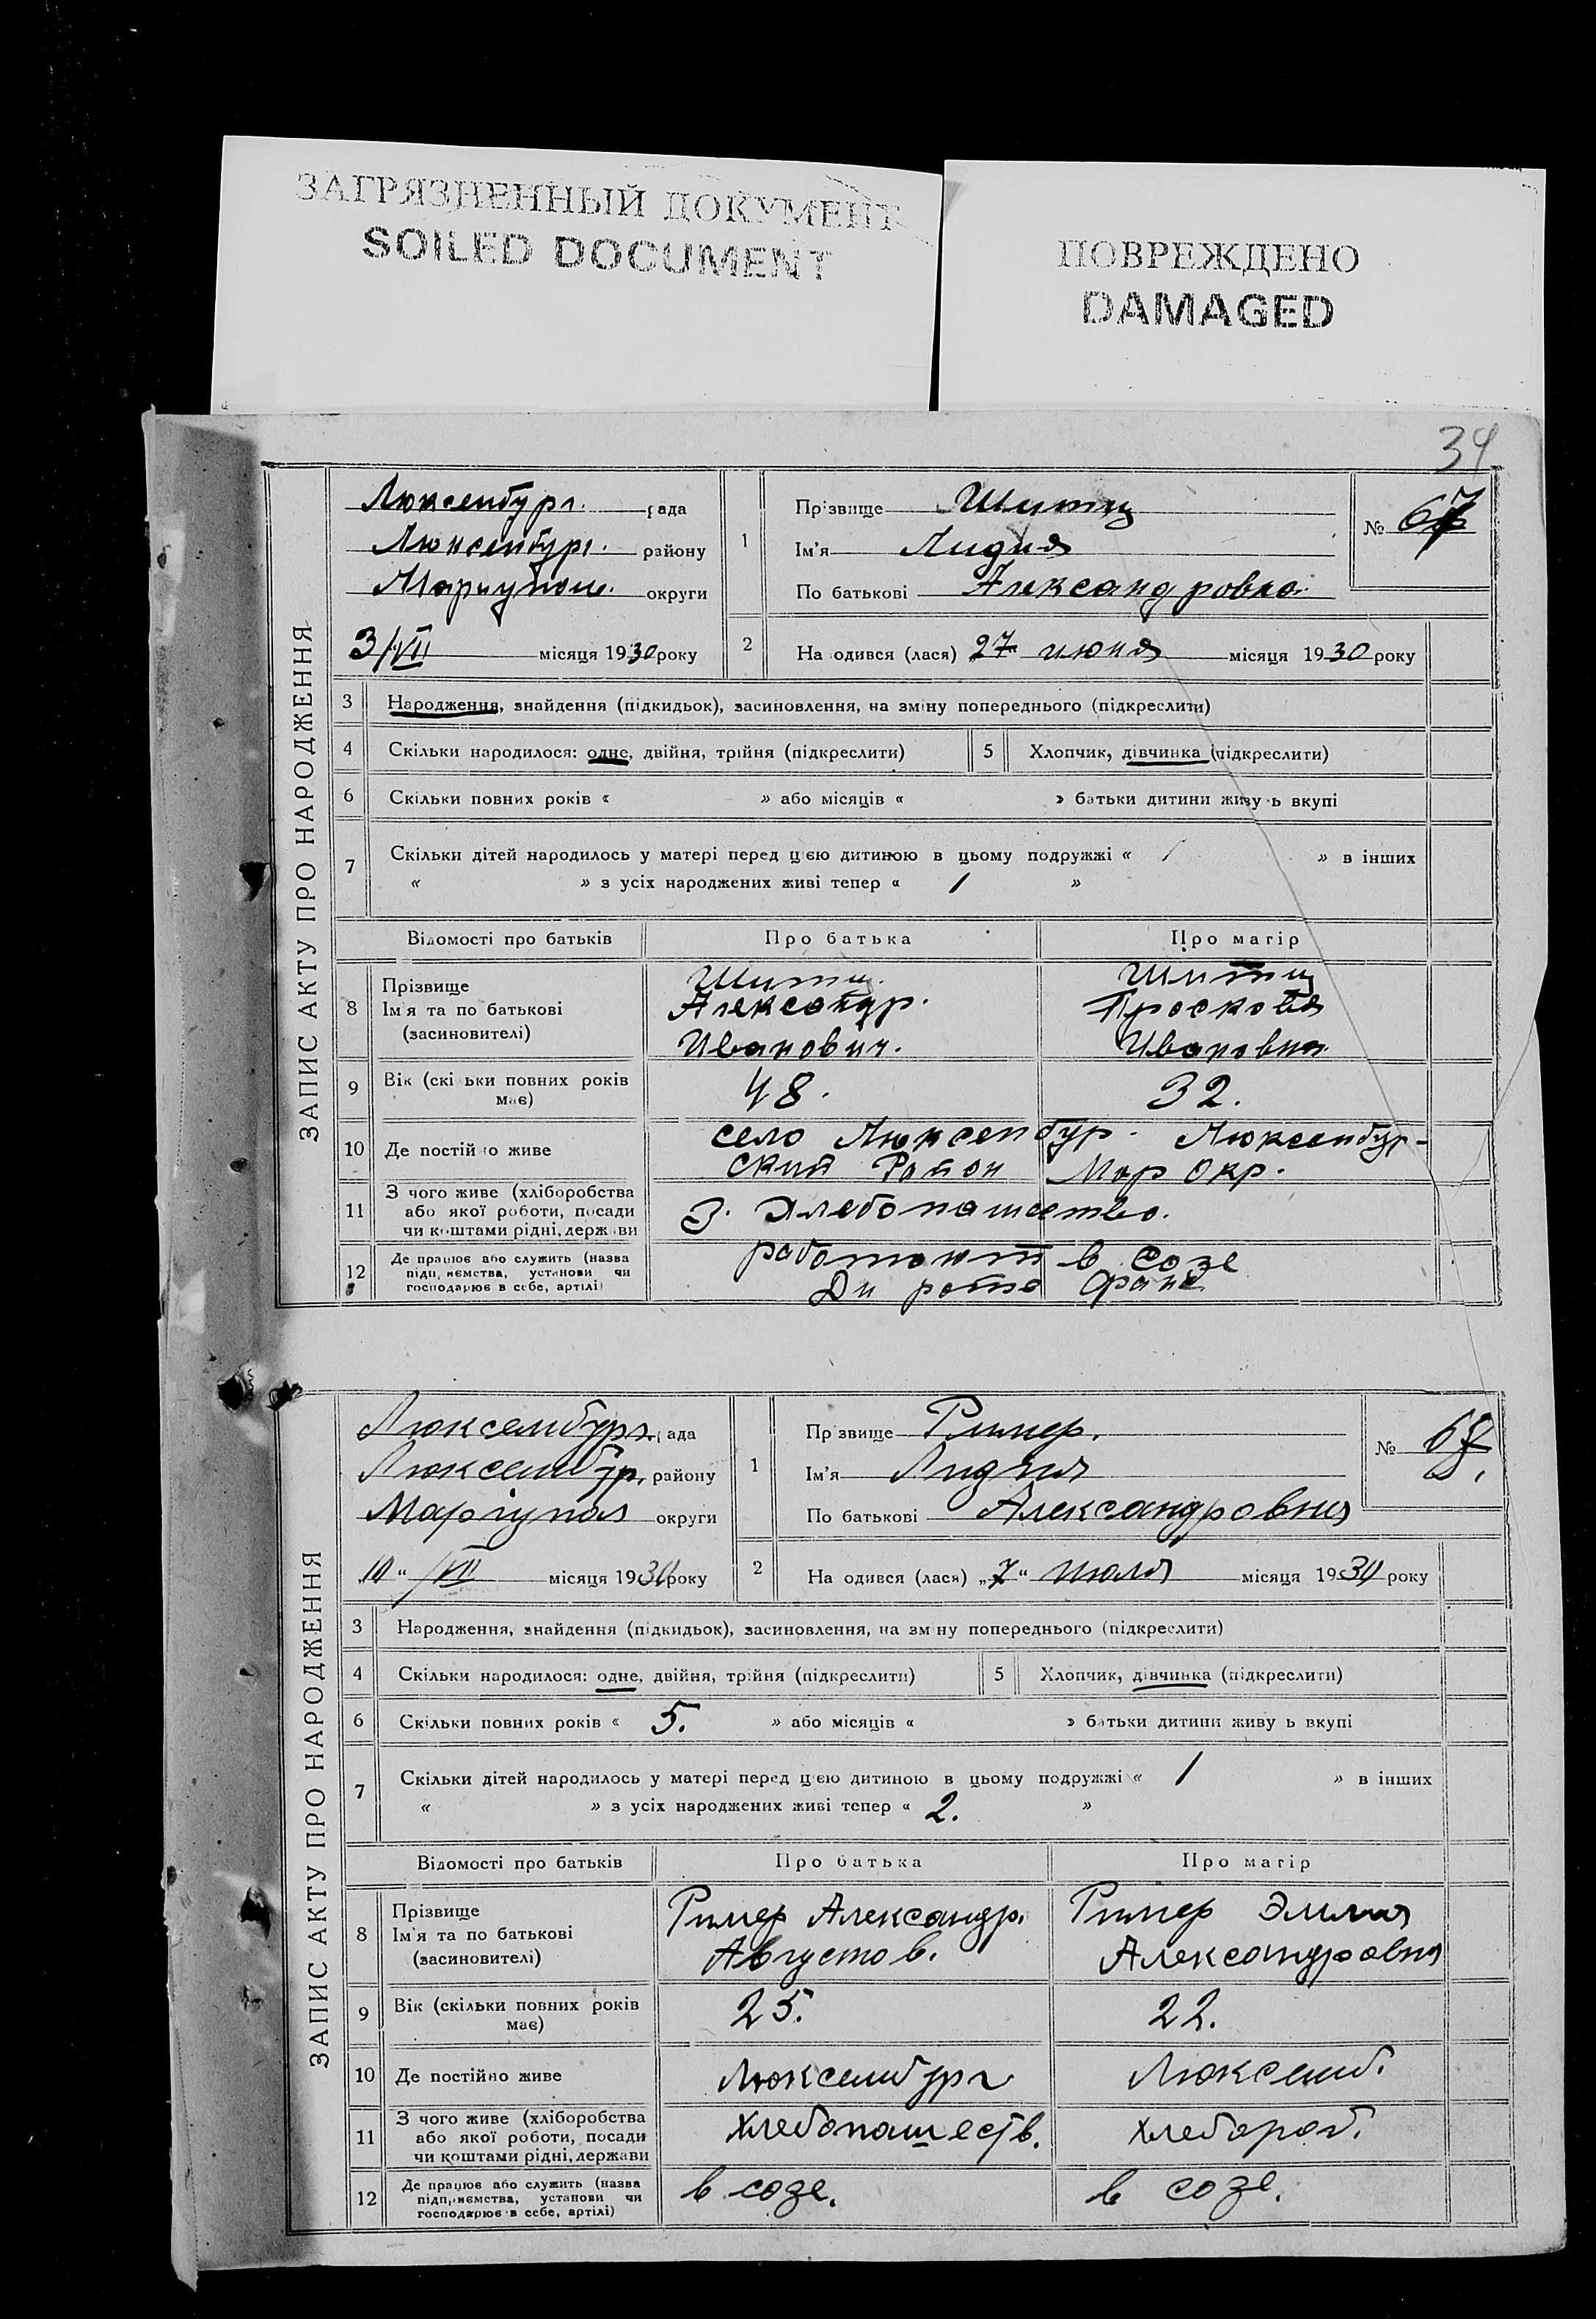 ЗАГРЯЗНЕННЫЙ ДОКУМЕНТ
SOILED DOCUMENT
ПОВРЕЖДЕНО
DAMAGED
34
ЗАПИС АКТУ ПРО НАРОДЖЕННЯ
Люксенбург. рада
Люксенбург. району
Мариупол. округи
3/VII місяця 1930 року
1 Прізвище Шитц
Ім'я Лидия
По батькові Александровна
№ 67
2 Народився (лася) 27 июня місяця 1930 року
3 Народження, знайдення (підкидьок), засиновлення, на зміну попереднього (підкреслити)
4 Скільки народилося: одне, двійня, трійня (підкреслити) 5 Хлопчик, дівчинка (підкреслити)
6 Скільки повних років « » або місяців « » батьки дитини живуть вкупі
7 Скільки дітей народилось у матері перед цією дитиною в цьому подружжі « / » в інших
« » з усіх народжених живі тепер « 1 »
Відомості про батьків Про батька Про матір
8 Прізвище
Ім'я та по батькові
(засиновителі)
Шитц
Александр.
Иванович.
Шитц
Просковя
Ивановна
9 Вік (скільки повних років
має)
48. 32.
10 Де постійно живе
село Люксенбур. Люксенбур-
ский Район Мар окр.
11 З чого живе (хліборобства
або якої роботи, посади
чи коштами рідні, держави
З. Хлебопашество.
12 Де працює або служить (назва
підприємства, установи чи
господарює в себе, артілі)
работают в Созе
Ди роте Фане
ЗАПИС АКТУ ПРО НАРОДЖЕННЯ
Люксембург. рада
Люксембур. району
Маріупол округи
„10“ /VII місяця 1930 року
1 Прізвище Ример.
Ім'я Лидия
По батькові Александровна
№ 68.
2 Народився (лася) „7“ июля місяця 1930 року
3 Народження, знайдення (підкидьок), засиновлення, на зміну попереднього (підкреслити)
4 Скільки народилося: одне, двійня, трійня (підкреслити) 5 Хлопчик, дівчинка (підкреслити)
6 Скільки повних років « 5. » або місяців « » батьки дитини живуть вкупі
7 Скільки дітей народилось у матері перед цією дитиною в цьому подружжі « 1 » в інших
« » з усіх народжених живі тепер « 2. »
Відомості про батьків Про батька Про матір
8 Прізвище
Ім'я та по батькові
(засиновителі)
Ример Александр.
Августов.
Ример Эмилия
Александровна
9 Вік (скільки повних років
має)
25. 22.
10 Де постійно живе Люксембург Люксемб.
11 З чого живе (хліборобства
або якої роботи, посади
чи коштами рідні, держави
Хлебопашеств. Хлебороб.
12 Де працює або служить (назва
підприємства, установи чи
господарює в себе, артілі)
в созе. в созе.